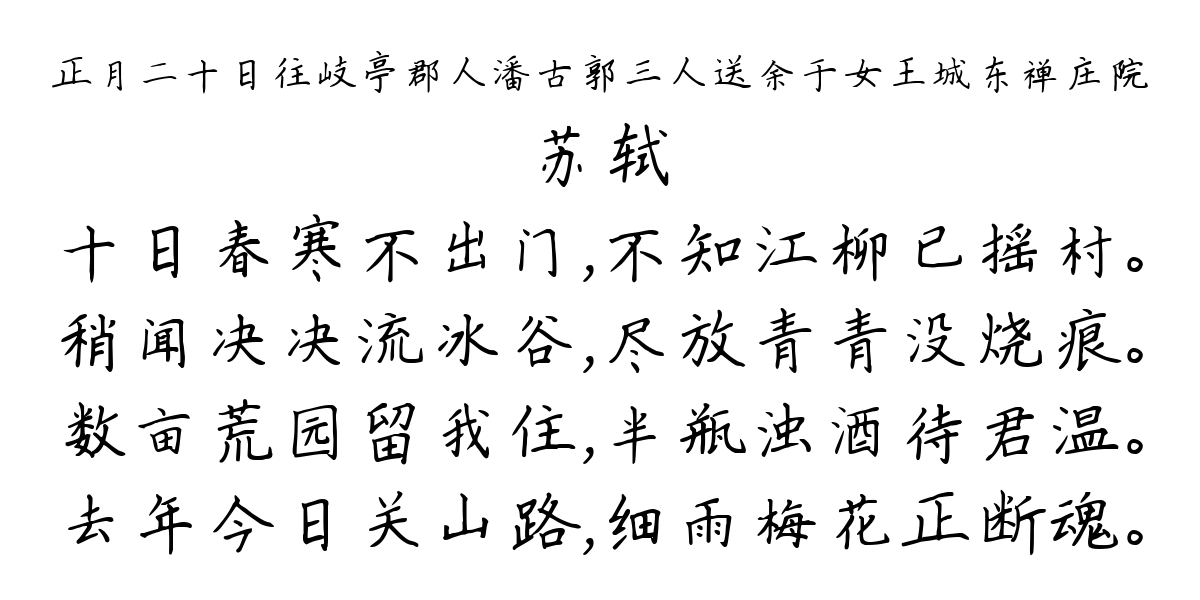 正月二十日往岐亭郡人潘古郭三人送余于女王城东禅庄院
苏轼
十日春寒不出门,不知江柳已摇村。
稍闻决决流冰谷,尽放青青没烧痕。
数亩荒园留我住,半瓶浊酒待君温。
去年今日关山路,细雨梅花正断魂。